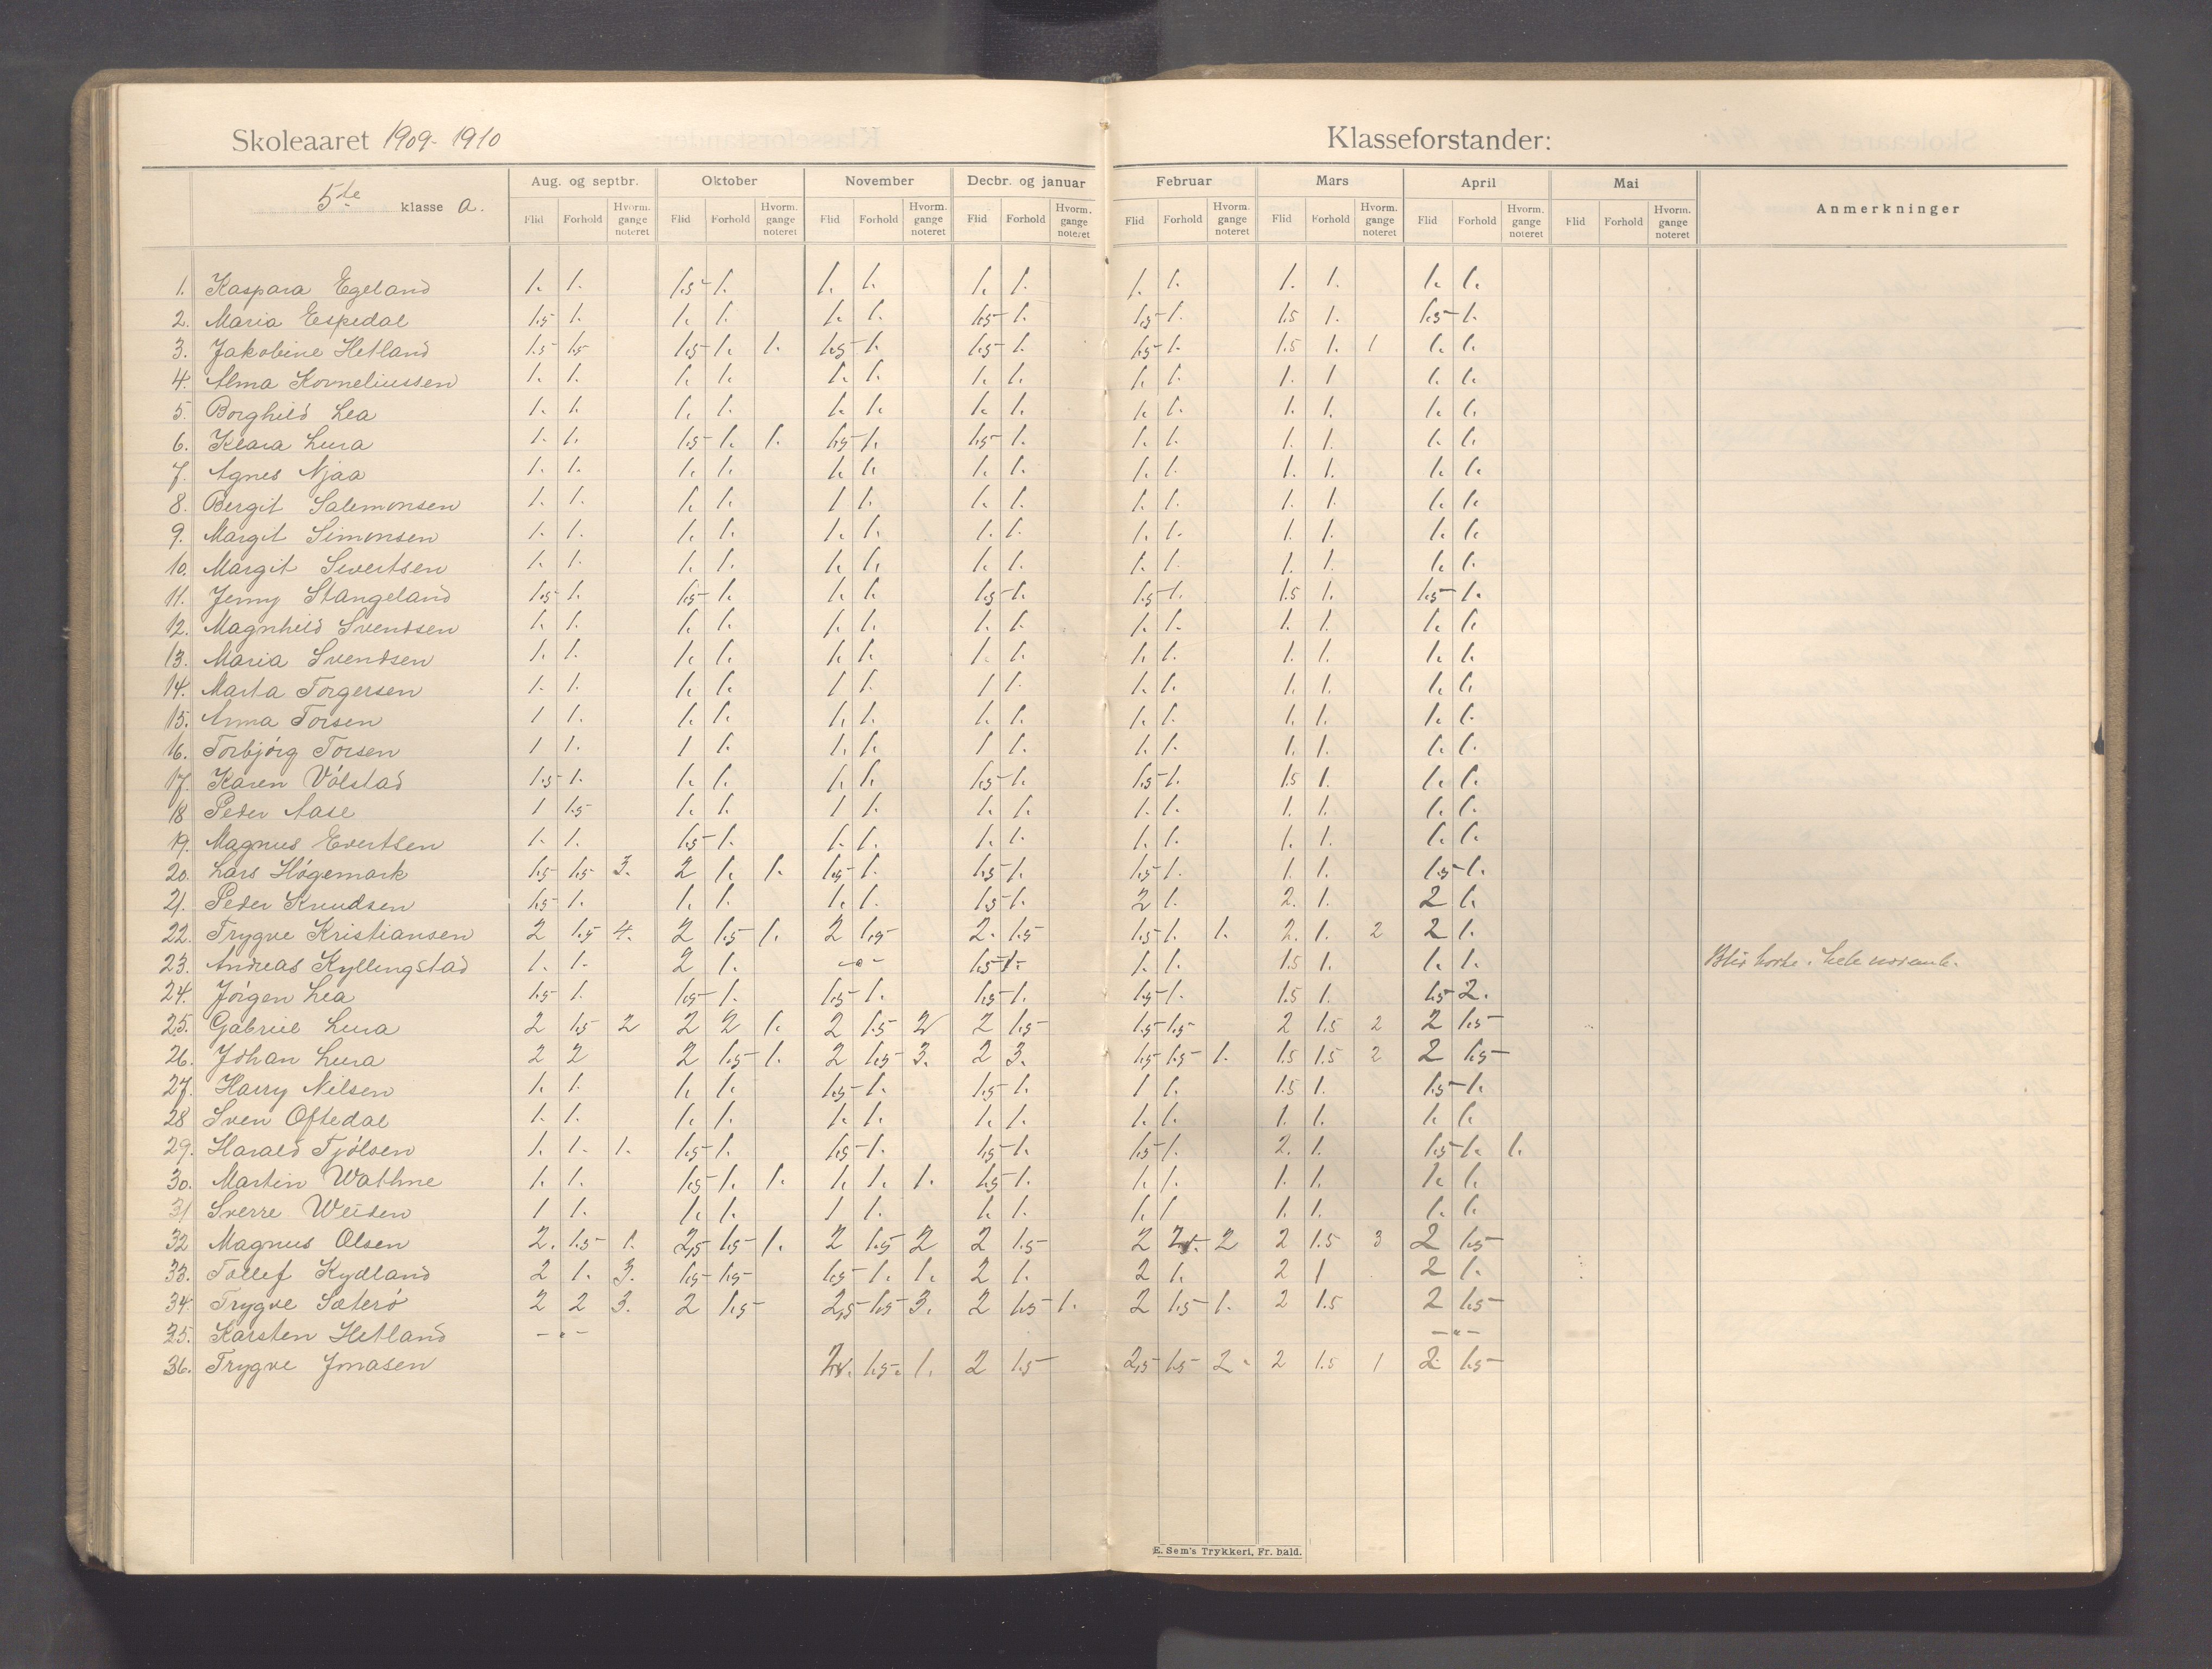 Skoleaaret 1909-1910 Klasseforstander:
5te klasse a. Aug. og septbr. Oktober November Decbr. og januar Februar Mars April Mai Anmerkninger
Flid Forhold Hvorm. gange noteret Flid Forhold Hvorm. gange noteret Flid Forhold Hvorm. gange noteret Flid Forhold Hvorm. gange noteret Flid Forhold Hvorm. gange noteret Flid Forhold Hvorm. gange noteret Flid Forhold Hvorm. gange noteret Flid Forhold Hvorm. gange noteret
1. Kaspara Egeland 1. 1. 1.5 1. 1. 1. 1. 1. 1. 1. 1. 1. 1. 1.
2. Maria Espedal 1.5 1. 1. 1. 1. 1. 1.5 1. 1.5 1. 1.5 1. 1.5 1.
3. Jakobine Hetland 1.5 1.5 1.5 1. 1. 1.5 1. 1.5 1. 1.5 1. 1.5 1. 1 1. 1.
4. Alma Korneliussen 1. 1. 1. 1. 1. 1. 1. 1. 1. 1. 1. 1 1. 1.
5. Borghild Lea 1. 1. 1. 1. 1. 1. 1. 1. 1. 1. 1. 1. 1. 1.
6. Klara Lura 1. 1. 1.5 1. 1. 1.5 1. 1.5 1. 1. 1. 1. 1. 1. 1.
7. Agnes Njaa 1. 1. 1. 1. 1. 1. 1. 1. 1. 1. 1. 1. 1. 1.
8. Bergit Salemonsen 1. 1. 1. 1. 1 1. 1. 1. 1. 1. 1. 1. 1. 1.
9. Margit Simonsen 1. 1. 1. 1. 1. 1. 1. 1. 1. 1. 1. 1. 1. 1.
10. Margit Sivertsen 1. 1. 1. 1. 1. 1. 1. 1. 1. 1. 1. 1. 1. 1.
11. Jenny Stangeland 1.5 1. 1.5 1. 1. 1. 1.5 1. 1.5 1. 1.5 1. 1.5 1.
12. Magnhild Svendsen 1. 1. 1. 1. 1. 1. 1. 1. 1. 1. 1. 1. 1. 1.
13. Maria Svendsen 1. 1. 1. 1. 1. 1. 1. 1. 1. 1. 1. 1. 1. 1.
14. Marta Torgersen 1. 1. 1. 1. 1 1. 1 1. 1. 1. 1. 1. 1. 1.
15. Anna Torsen 1 1. 1. 1. 1. 1. 1. 1. 1. 1. 1. 1. 1. 1.
16. Torbjörg Torsen 1 1. 1 1. 1. 1. 1 1. 1. 1. 1. 1. 1. 1.
17. Karen Vólstad 1.5 1. 1. 1. 1. 1. 1.5 1. 1.5 1. 1.5 1. 1. 1.
18 Peder Aase 1 1.5 1. 1. 1 1. 1. 1. 1. 1. 1. 1. 1. 1.
19. Magnus Evertsen 1. 1. 1.5 1. 1. 1. 1. 1. 1. 1. 1. 1. 1. 1.
20. Lars Högemark 1.5 1.5 3. 2 1. 1. 1.5 1. 1.5 1. 1.5 1. 1. 1. 1.5 1.
21. Peder Knudsen 1.5 1. 1. 1. 1. 1. 1.5 1. 2 1. 2. 1. 2 1.
22. Trygve Kristiansen 2 1.5 4. 2 1.5 1. 2 1.5 2. 1.5 1.5 1. 1. 2. 1. 2 2 1.
23. Andreas Kyllingstad 1. 1. 2 1. -o- 1.5 1. 1. 1. 1.5 1. 1. 1.
24. Jörgen Lea 1.5 1. 1.5 1. 1.5 1. 1.5 1. 1.5 1. 1.5 1. 1.5 2.
25. Gabriel Lura 2 1.5 2 2 2 1. 2 1.5 2 2 1.5 1.5 1.5 2 1.5 2 2 1.5
26. Johan Lura 2 2 2 1.5 1. 2 1.5 3. 2 3. 1.5 1.5 1. 1.5 1.5 2 2 1.5
27. Harry Nilsen 1. 1. 1. 1. 1.5 1. 1.5 1. 1 1. 1.5 1. 1.5 1.
28 Sven Oftedal 1. 1. 1. 1. 1. 1. 1. 1. 1. 1. 1. 1. 1. 1.
29. Harald Tjölsen 1. 1. 1. 1.5 1. 1.5 1. 1.5 1. 1.5 1. 2. 1. 1.5 1. 1.
30. Martin Wathne 1. 1. 1.5 1. 1. 1. 1. 1. 1.5 1. 1. 1. 1. 1. 1. 1.
31 Sverre Weiden 1 1. 1. 1. 1 1. 1. 1. 1. 1 1. 1. 1. 1.
32 Magnus Olsen 2. 1.5 1. 2,5 1.5 1. 2 1.5 2 2 1.5 2 2 2 1.5 3 2 1.5
33. Tollef Kydland 2 1. 3. 1.5 1.5 1.5 1. 1. 2 1. 2 1. 2 1 2 1.
34. Trygve Sæterö 2 2 3. 2 1.5 2,5 1.5 3. 2 1.5 1. 2 1.5 1. 2 1.5 2 1.5
35. Karsten Hetland -"- -"-
36. Trygve Jonasen 1.5 1. 2 1.5 2,5 1.5 2. 2 1.5 1 2. 1.5
E. Sem's Trykkeri, Fr. hald.